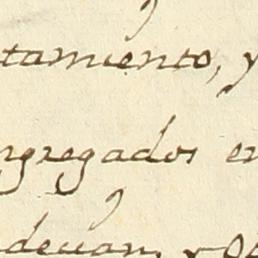 tamiento, y
ngregados en
decian, y